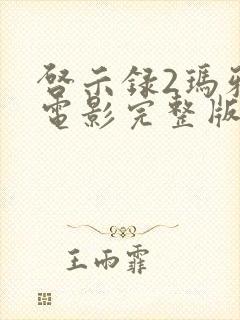 啓示録2瑪雅
電影完整版
王雨霏